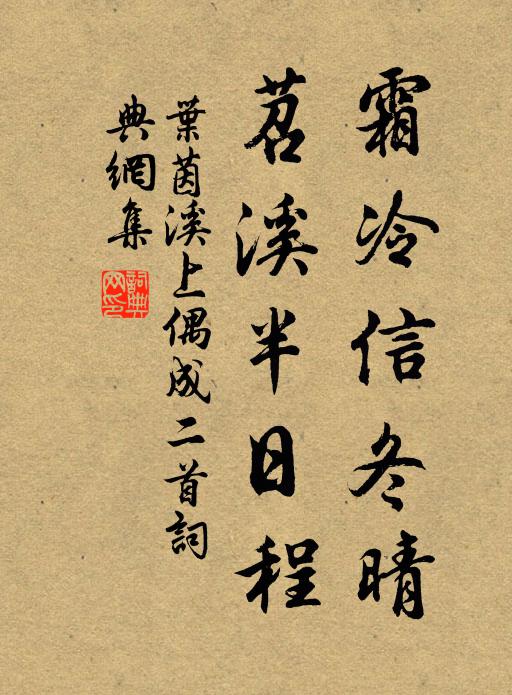 霜冷信冬晴
苕溪半日程
葉茵溪上偶成二首詞
典網集
詞典網印